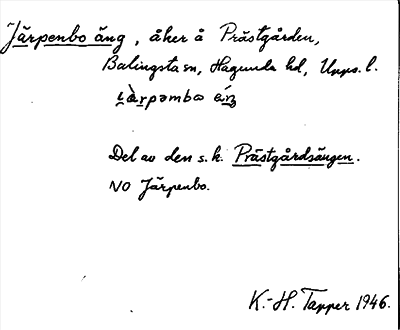 Järpenbo äng, åker å Prästgården,
Balingsta sn, Hagunda hd, Upps. l.
Del av den s.k. Prästgårdsängen.
NO Järpenbo.
K.-H. Tapper 1946.